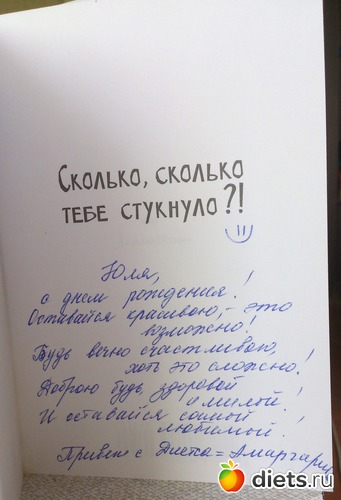 Сколько, сколько
тебе стукнуло?!
Юля,
с днем рождения!
Оставайся красивою, - это
возможно!
Будь вечно счастливою,
хоть это сложно!
Доброю будь, здоровой
и милой!
И оставайся самой
любимой!
Привет с
diets.ru